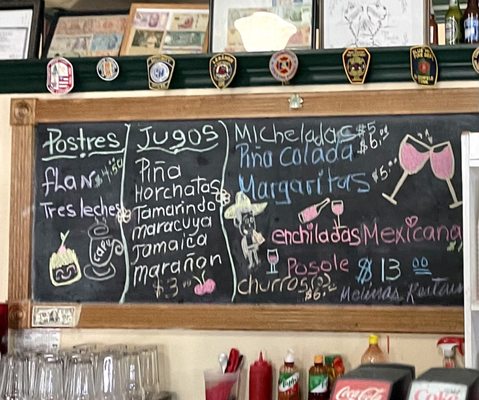 Postres
flan $4.50
Tres leches
café
Jugos
Piña
Horchatas
Tamarindo
maracuya
Jamaica
marañon
$3.00
Micheladas $5
Piña Colada $6.00
Margaritas $5.00
enchiladas Mexicana
Posole $13.00
churros $6.00
Molinas
Coca-Cola
Coke